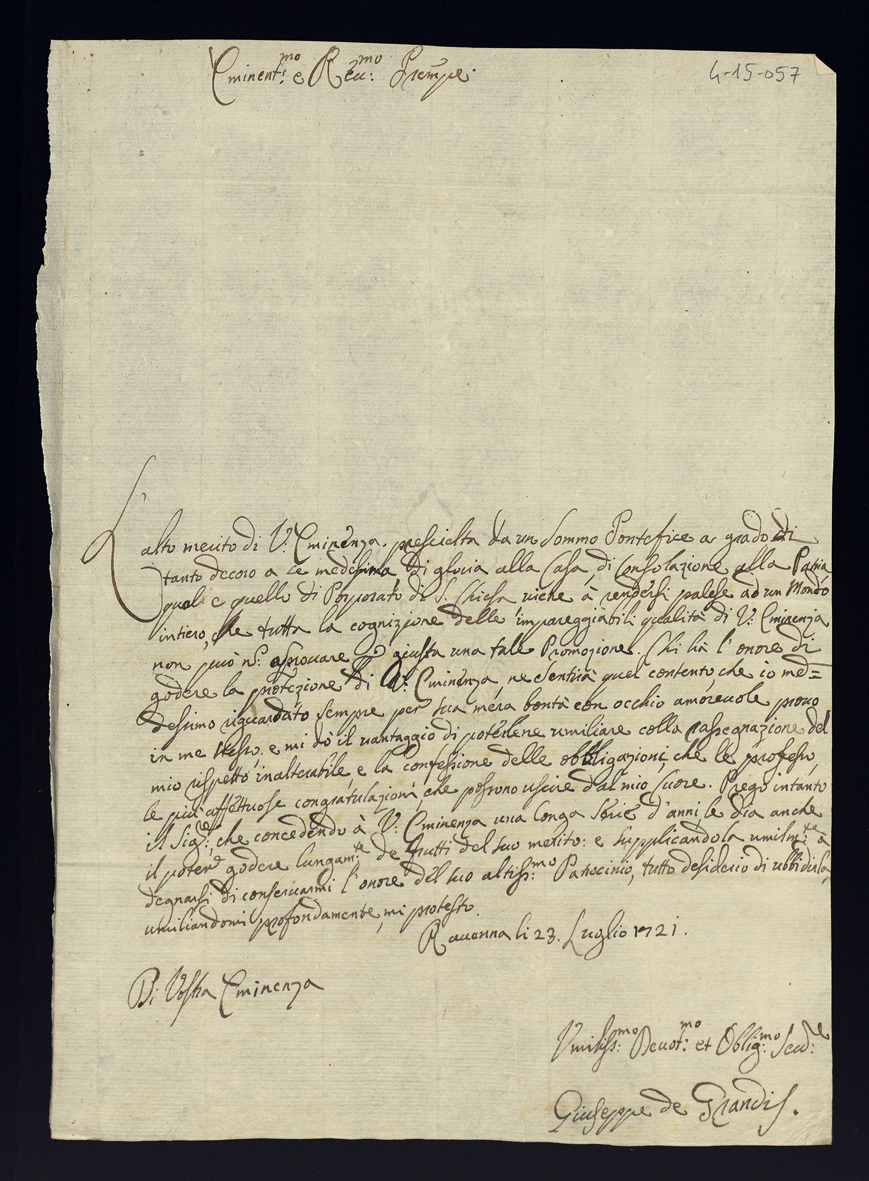 Eminent.mo e Reu.mo Prempe:
4-15-057
L'alto merito di V. Eminenza, presciclta da un Sommo Pontefice a grado di
tanto decoro a se medesima di gloria alla Casa, di Consolazione alla Patria
qual'è quello di Porporato di S. Chiesa viene à rendersi palese ad un Mondo
intiero, che tutta la cognizione delle impareggiabili qualità di V. Eminenza
non può n. approuare giusta una tale Promozione. Chi hà l'onore di
godere la protezione di V. Eminenza, ne sentirà quel contento, che io med=
desimo riguardato sempre per sua mera bontà con occhio amoreuole prouo
in me stesso. e mi dò il vantaggio di potèrlene umiliare colla rassegnazione del
mio rispetto inalterabile, e la confessione delle obbligazioni, che le professo
le più affettuose congratulazioni, che possono uscire dal mio Cuore. Prego intanto
il Sig.re, che concedendo à V. Eminenza una longa serie d'anni, le dia anche
il poter godere lungam.te de frutti del suo merito: e supplicandola umilm.te à
degnarsi di conseruarmi l'onore del suo altiss.mo Patrocinio, tutto desiderio di ubbidirla,
umiliandomi profondamente, mi protesto.
Rauenna li 23. Luglio 1721.
Di Vostra Eminenza
Vmiliss.mo Deuot.mo et Oblig.mo Seru.e
Giuseppe de Grandis.